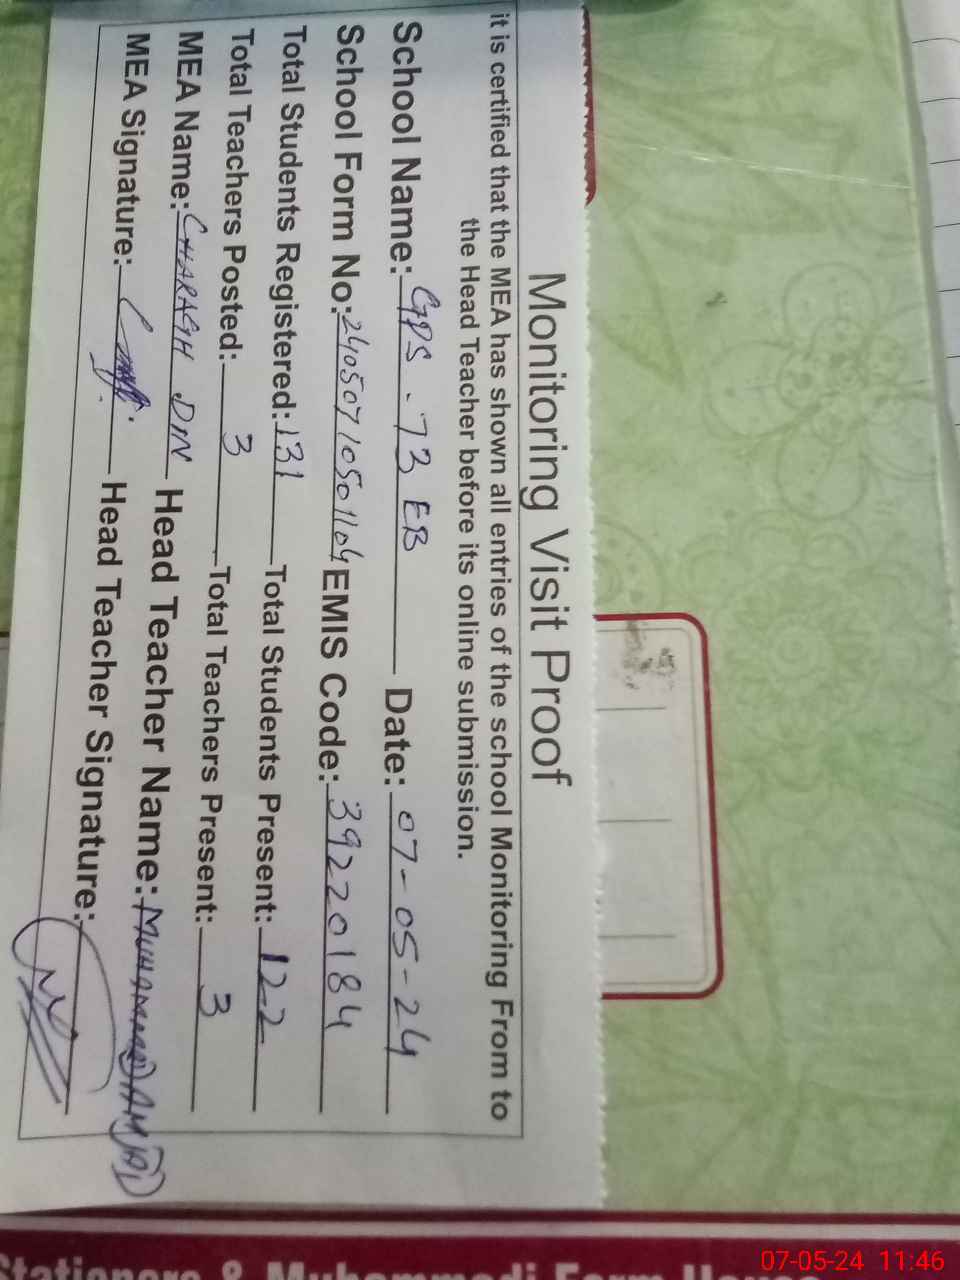 Monitoring Visit Proof
it is certified that the MEA has shown all entries of the school Monitoring From to
the Head Teacher before its online submission.
School Name: GPS - 73 EB Date: 07-05-24
School Form No: 24050710501104 EMIS Code: 39220184
Total Students Registered: 131 Total Students Present: 122
Total Teachers Posted: 3 Total Teachers Present: 3
MEA Name: CHARAGH DIN Head Teacher Name: MUHAMMAD AMJAD
MEA Signature: Head Teacher Signature:
07-05-24 11:46